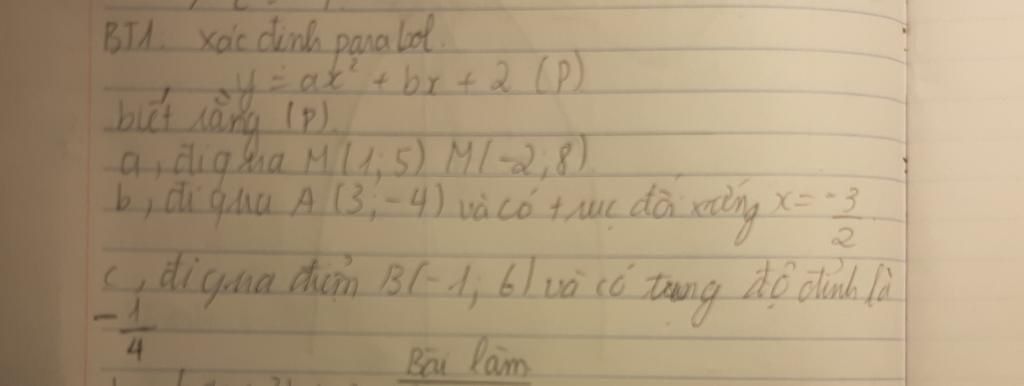 BT1. xác định parabol.
y = ax² + bx + 2 (P)
biết rằng (P)
a, đi qua M(1; 5) M(-2; 8)
b, đi qua A (3; -4) và có trục đối xứng x = -3/2
c, đi qua điểm B(-1; 6) và có tung độ đỉnh là
-1/4
Bài làm